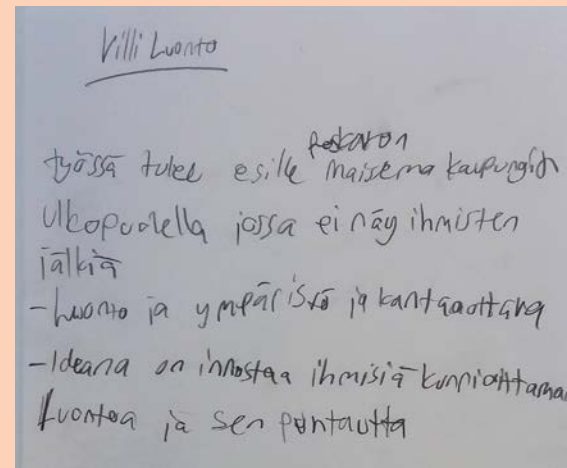 Villi Luonto
työssä tulee esille maisema kaupungin
Ulkopuolella jossa ei näy ihmisten
jälkiä
- Luonto ja ympäristö ja kantaaottava
- Ideana on innostaa ihmisiä kunnioittamaan
Luontoa ja sen puhtautta